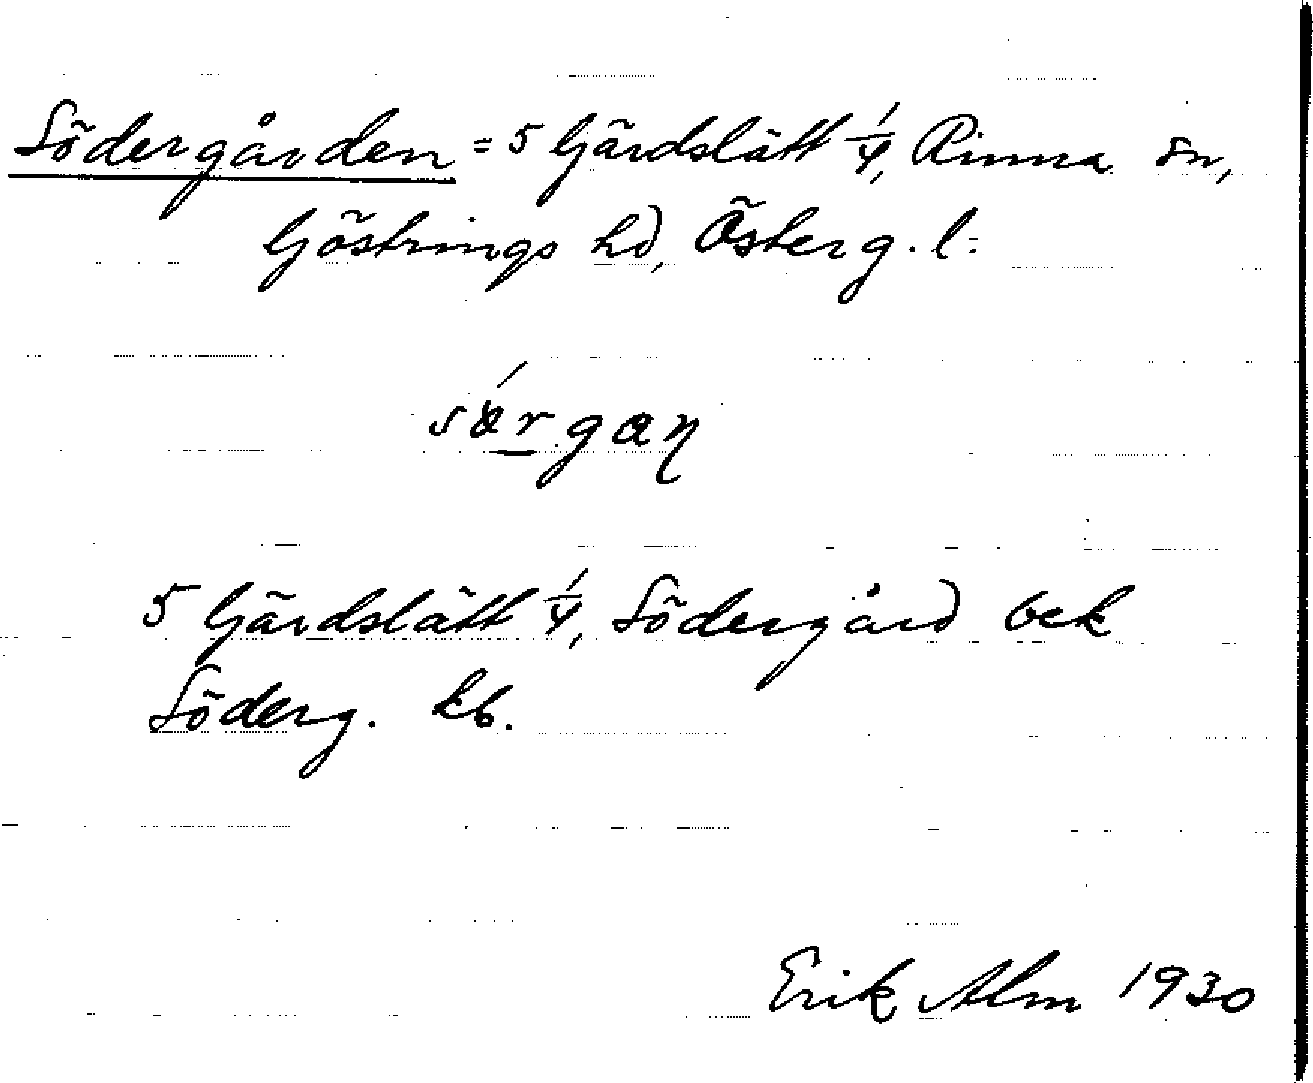 Södergården = 5 Gärdslätt 1/4, Rinna sn,
Göstrings hd, Österg. l.
5 Gärdslätt 1/4, Södergård bek
Söderg. kb.
Erik Alm 1930